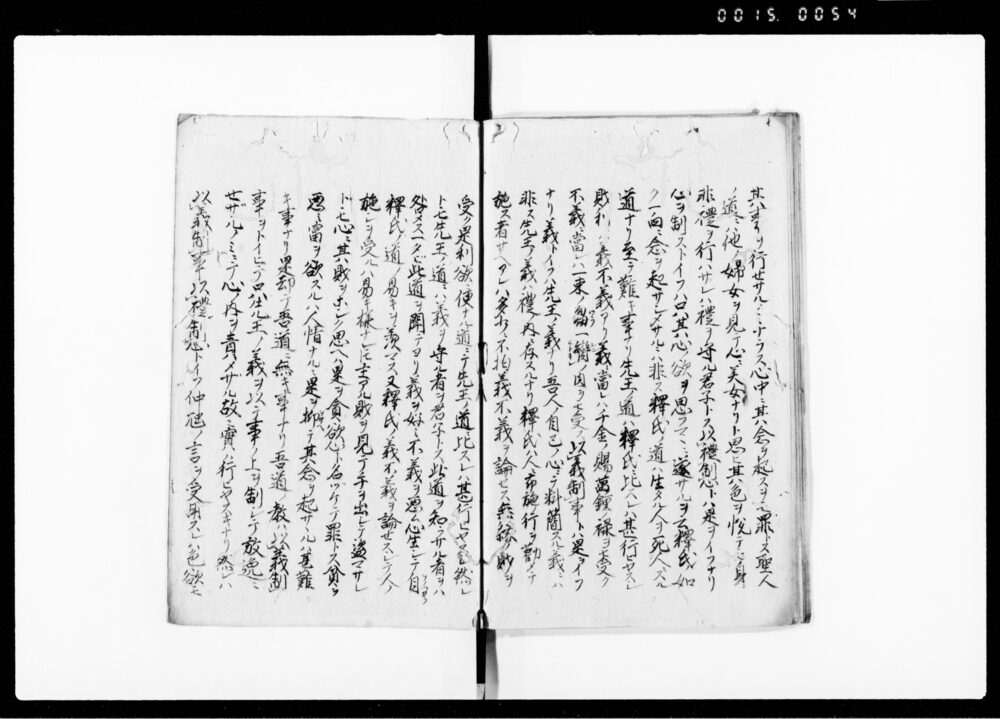 0015. 0054
其事ヲハ行セサルノミニテラス心中ニ其念ヲ起スヲモ罪トス聖人
ノ道ニハ他ノ婦女ヲ見テ心ニ美女ナリト思ヒ其色ヲ悦テモ身ニ
非禮ヲ行ハサレハ禮ヲ守ル君子トス以禮制心トハ是ヲイフナリ
心ヲ制ストイフハ只其心ノ欲ヲ思フママニ遂サルヲ云釋氏ノ如
ク一向ニ念ヲ起サシメサルニハ非ス釋氏ノ道ハ生タル人ヲ死人ニスル
道ナリ至テ難キ事ナリ先王ノ道ハ釋氏ニ比スレハ甚行ヒヤスシ
財利ニハ義不義アリ義ニ當レハ千金ノ賜萬鍾ノ禄ヲモ受ク
不義ニ當レハ一束ノ芻一臠ノ肉ヲモ受ス以義制事トハ是ヲイフ
ナリ義トイフハ先王ノ義ナリ吾人ノ自己ノ心ニテ料簡スル義ニハ
非ス先王ノ義ハ禮ノ内ニ存スルナリ釋氏ハ人ニ布施ノ行ヲ勸メテ
施ス者サヘアレハ多少ニ不拘義不義ヲ論セス無縁ノ財ヲ
受ク是利欲ニ便ナル道ニテ先王ノ道ニ比スレハ甚行ヒヤスシ然レ
トモ先王ノ道ニハ義ヲ守ル者ヲ君子トス此道ヲ知ラサル者ヲハ
咎メス一タヒ此道ヲ聞テヨリ義ヲ好ミ不義ヲ悪ム心生シテ自
釋氏ノ道ノ易キヲ羨マス又釋氏ノ義不義ヲ論セスシテ人ノ
施シヲ受ルハ易キ様ナレトモ主アル財ヲ見テ手ヲ出シテ盗マサレ
トモ心ニ其財ヲホシク思ヘハ是ヲ貪欲ト名ツケテ罪トス貧ヲ
悪ミ富ヲ欲スルハ人情ナルニ是ヲ抑テ其念ヲ起サルハ甚難
キ事ナリ是却テ吾道ニ無キ事ナリ吾道ノ教ハ以義制
事ヲトイヒテ只先王ノ義ヲ以テ事ノ上ヲ制シテ放逸ニ
セサルノミニテ心ノ内ヲ責メサル故ニ實ハ行ヒヤスキナリ然レハ
以義制事以禮制心トイフ仲虺ノ言ヲ受用スレハ色欲モ